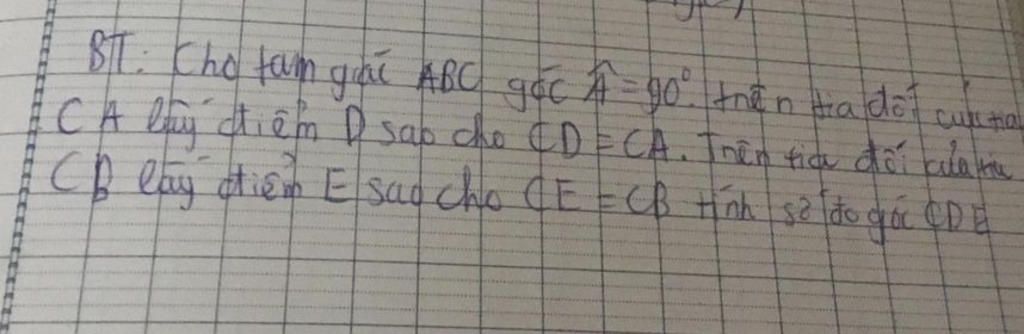 BT: Cho tam giác ABC góc Â = 90° trên tia đối của tia
CA lấy điểm D sao cho CD = CA. Trên tia đối của tia
CB lấy điểm E sao cho CE = CB tính số đo góc CDE